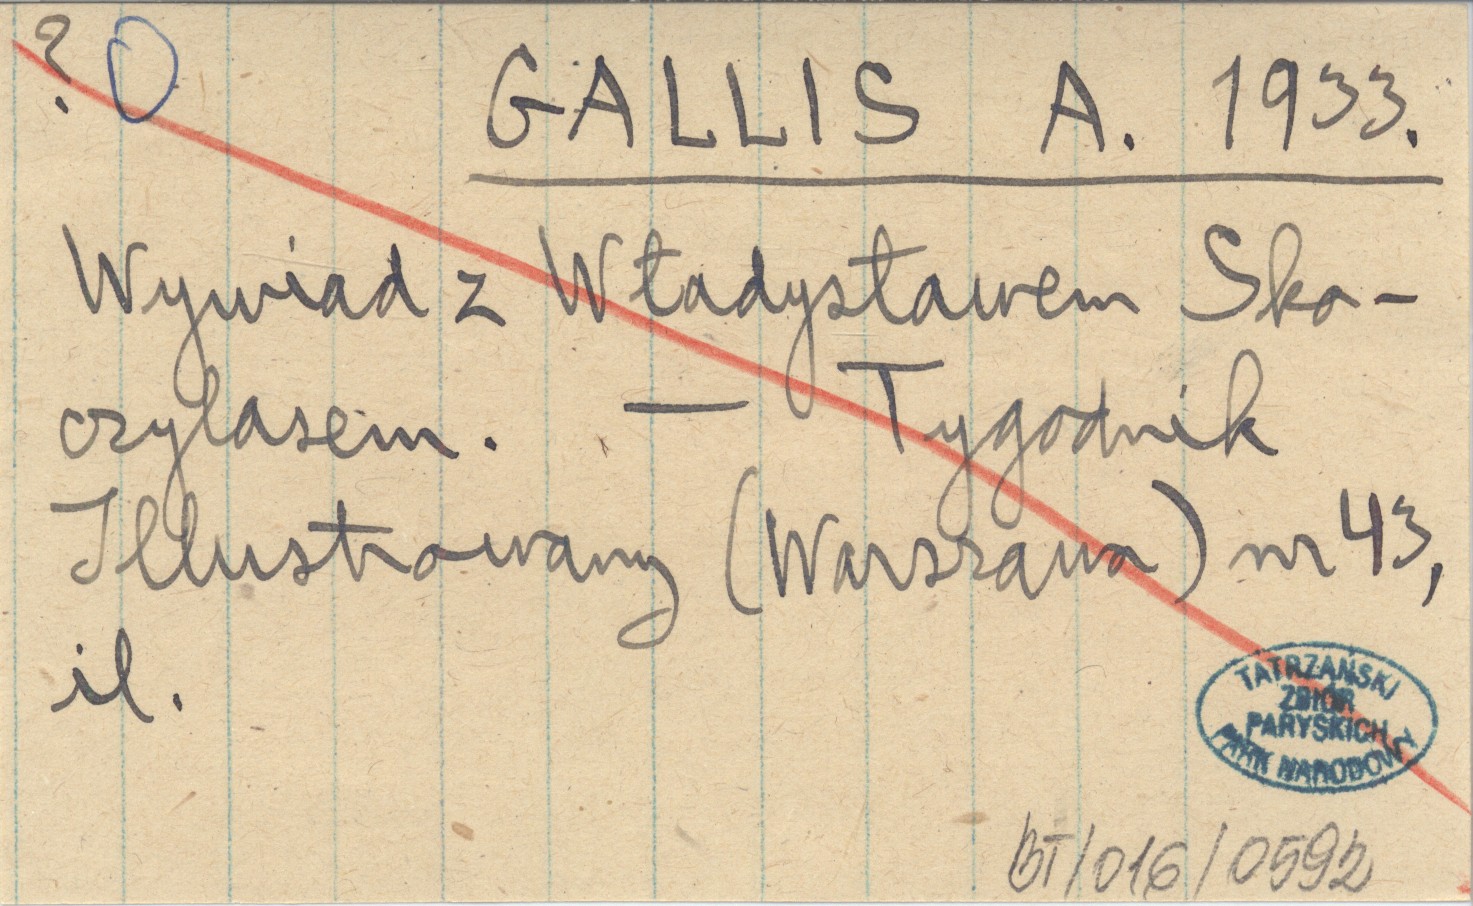 ? O
GALLIS A. 1933.
Wywiad z Władysławem Sko-
czylasem. — Tygodnik
Illustrowany (Warszawa) nr 43,
il.
TATRZAŃSKI
ZBIÓR
PARYSKICH
PARK NARODOWY
BT/016/0592